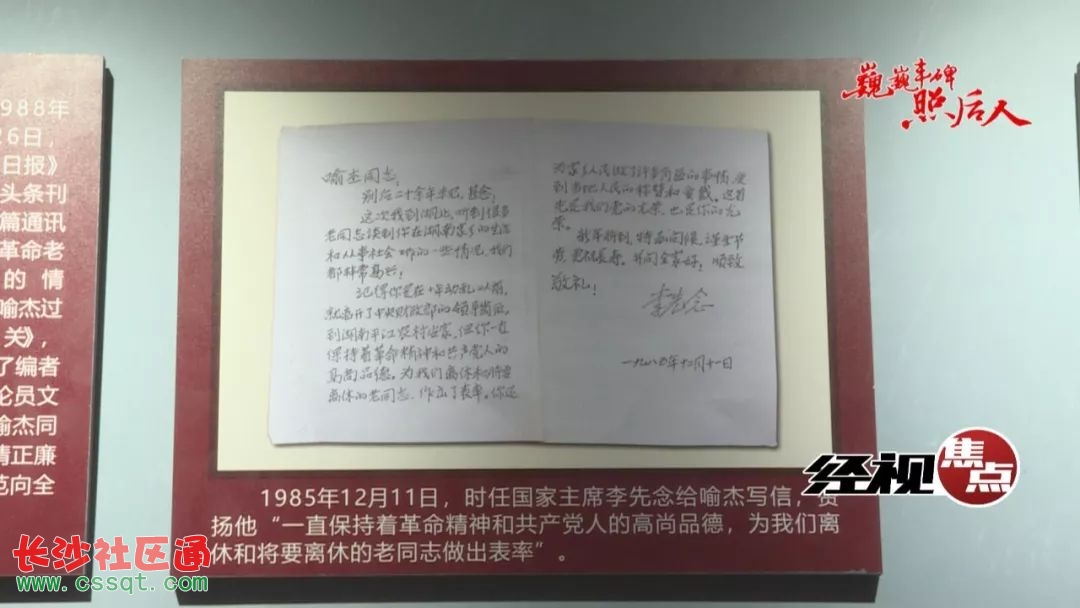 巍巍丰碑
照后人
1988年
26日，
日报》
头条刊
篇通讯
革命老
的情
喻杰过
关》，
了编者
论员文
喻杰同
清正廉
范向全
喻杰同志：
别后二十余年未见，甚念！
这次我到湖北，听到很多
老同志谈到你在湖南家乡的生活
和从事社会工作的一些情况，我们
都非常高兴！
记得你是在十年动乱以前，
就离开了中央财政部的领导岗位，
到湖南平江农村安家，但你一直
保持着革命精神和共产党人的
高尚品德。为我们离休和将要
离休的老同志，作出了表率。你还
为家乡人民做了许多有益的事情，受
到当地人民的称赞和爱戴。这首
先是我们党的光荣，也是你的光
荣。
新年将到，特函问候，谨祝节
健康长寿。并问全家好！顺致
敬礼！
李先念
一九八五年十二月十一日
1985年12月11日，时任国家主席李先念给喻杰写信，赞
扬他“一直保持着革命精神和共产党人的高尚品德，为我们离
休和将要离休的老同志做出表率”。
经视焦点
长沙社区通
www.cssqt.com